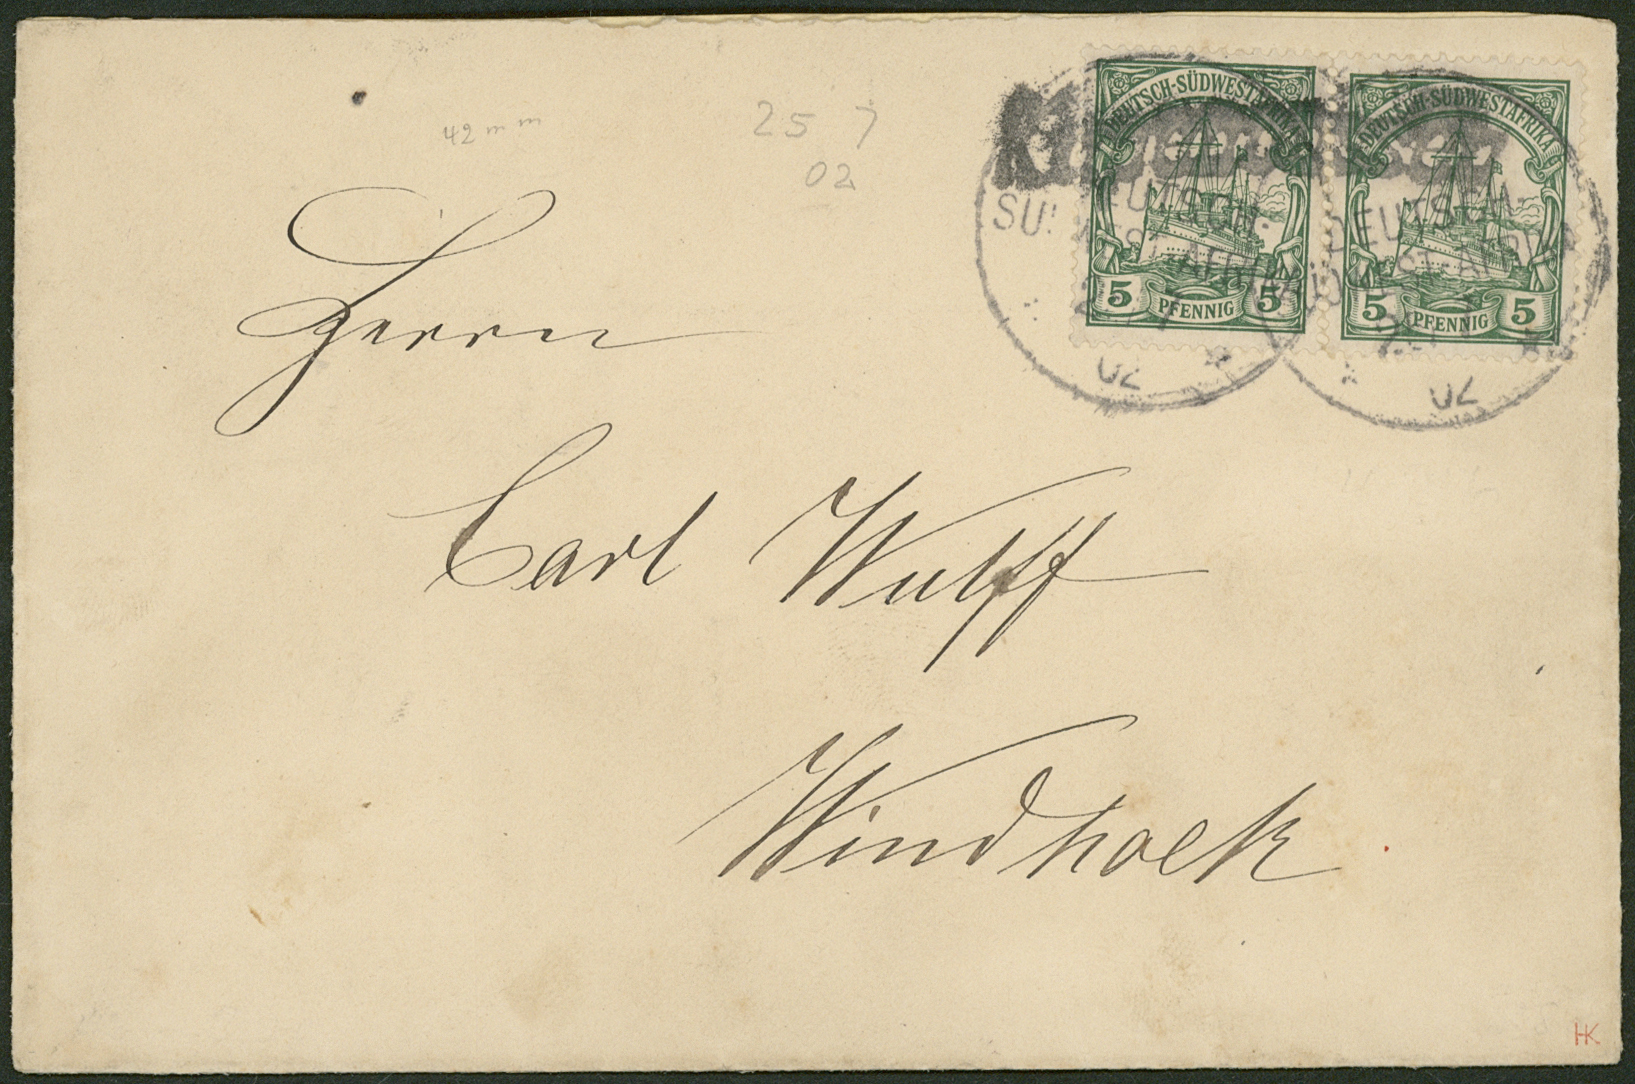 42 mm
25 7
02
DEUTSCH-SÜDWESTAFRIKA
5 PFENNIG 5
DEUTSCH-SÜDWESTAFRIKA
5 PFENNIG 5
DEUTSCH-
02
DEUTSCH-
02
Herrn
Carl Wulff
Windhoek
HK